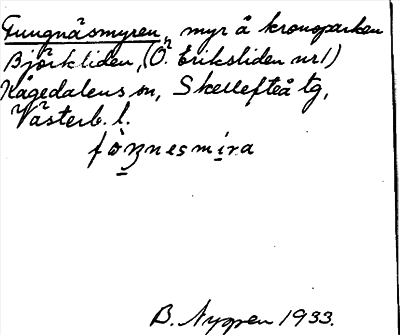 Furugnäsmyren, myr å kronoparken
Björkliden, (Ö. Eriksliden nr 1)
Kågedalens sn, Skellefteå tg,
Västerb. l.
B. Nygren 1933.